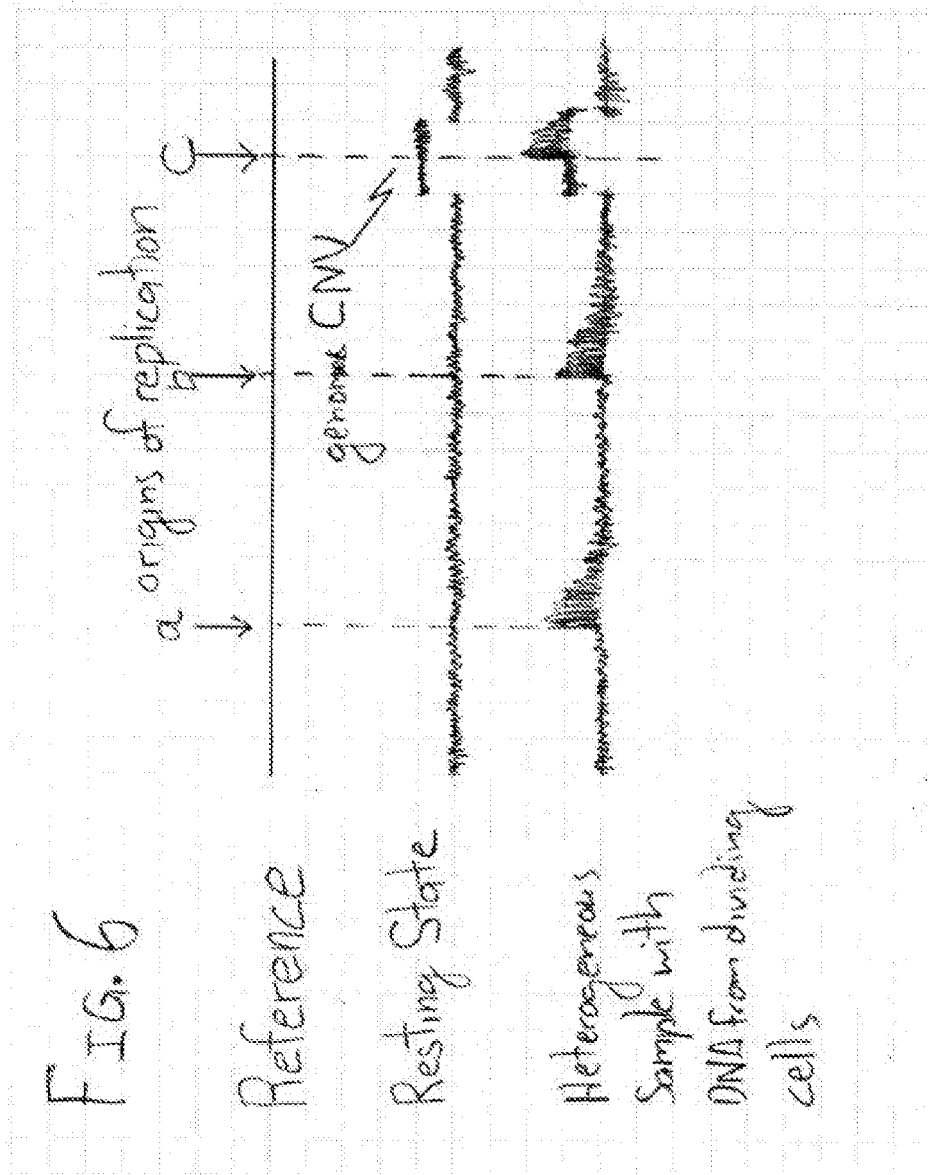 FIG. 6
origins of replication
a
b
C
Reference
genomic CNV
Resting State
Heterogeneous
Sample with
DNA from dividing
cells